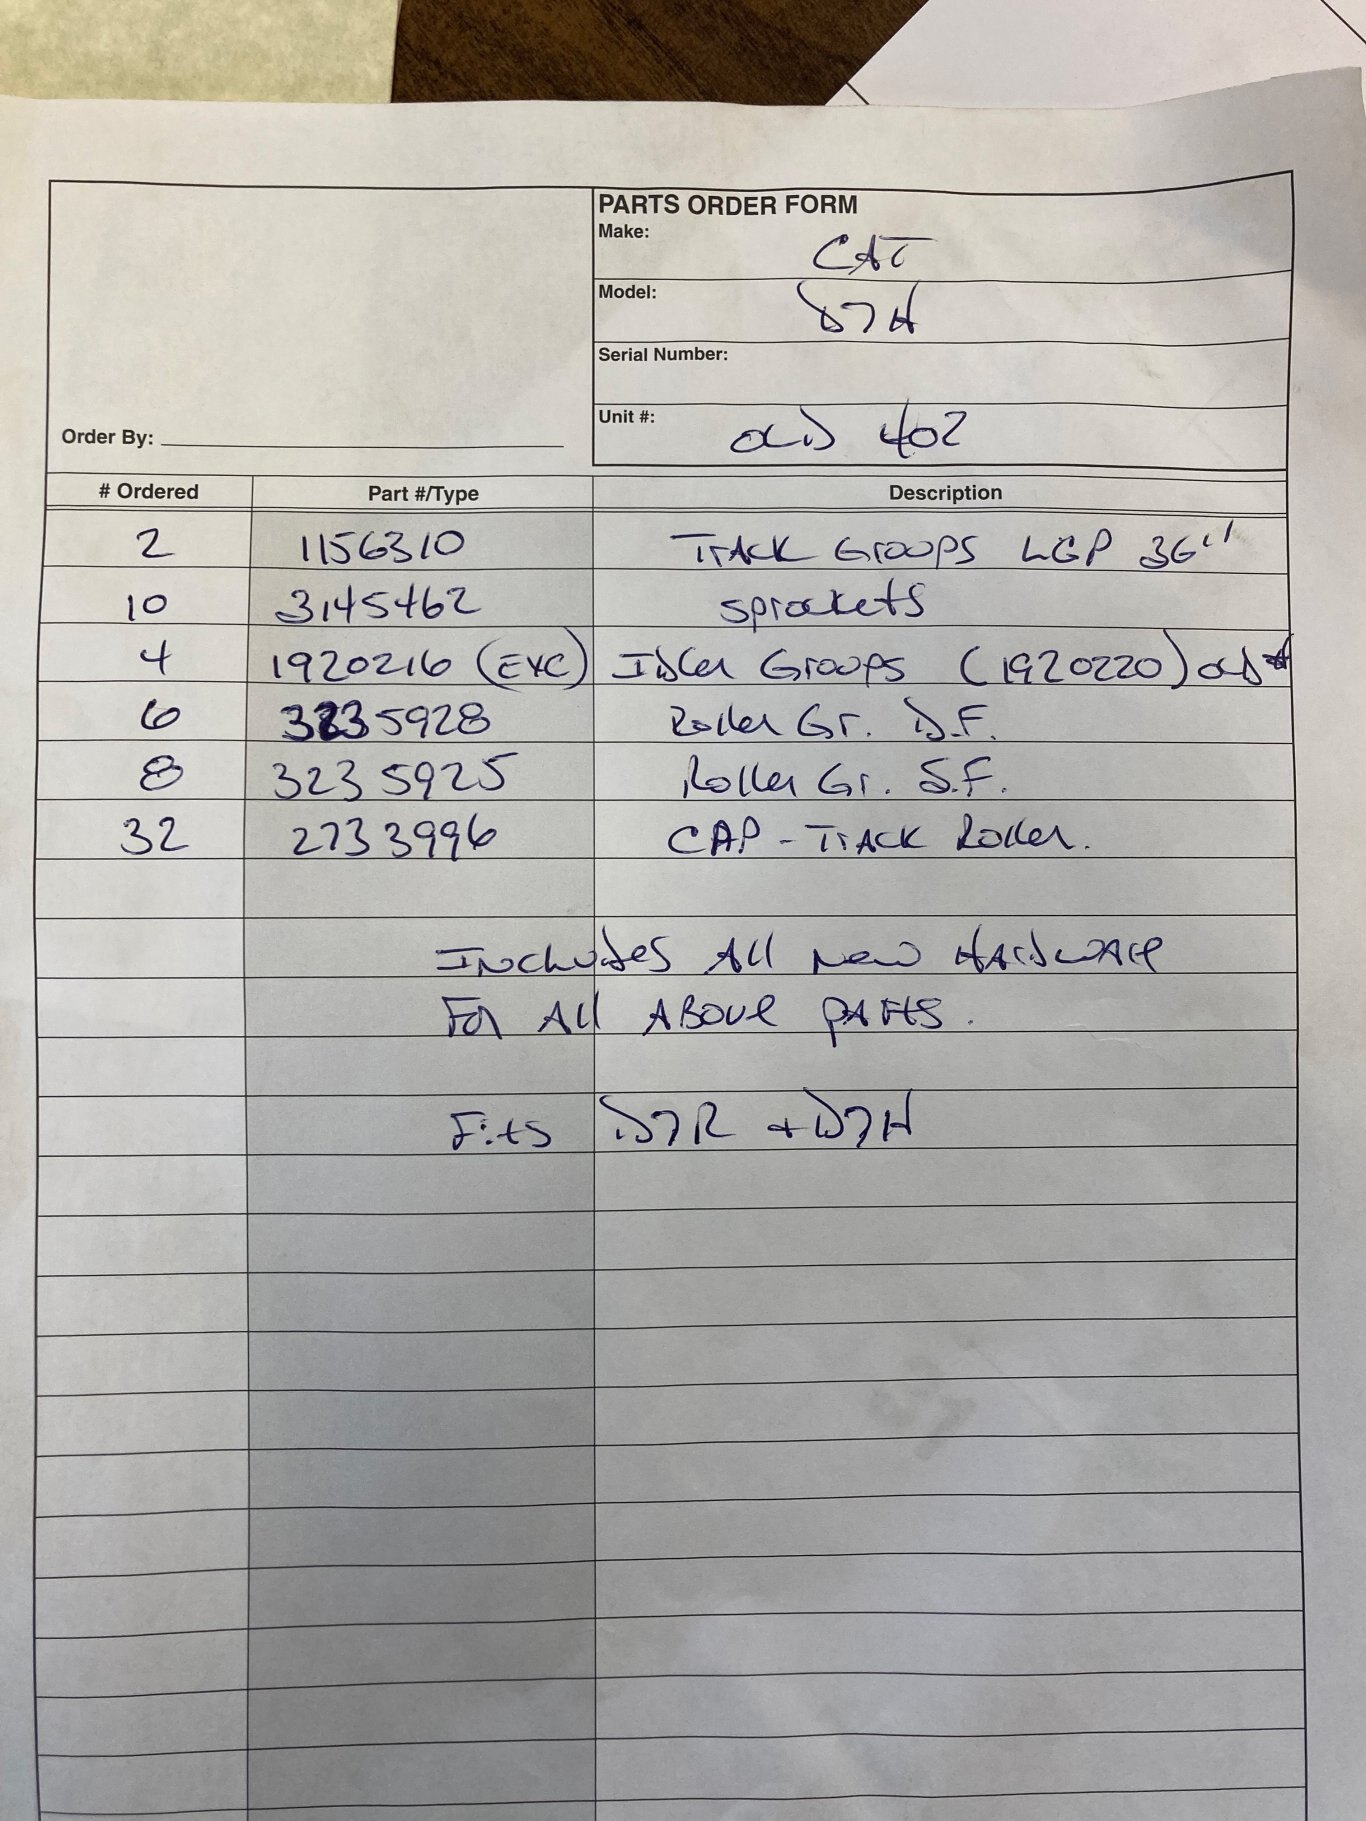 PARTS ORDER FORM
Make: CAT
Model: D7H
Serial Number:
Unit #: OLD 402
Order By:
# Ordered Part #/Type Description
2 1156310 TrACK GrOOPS LGP 36"
10 3145462 sprockets
4 1920216 (EXC) IDler Groops (1920220) OLD #
6 3235928 Roller Gr. D.F.
8 3235925 Roller Gr. S.F.
32 2733996 CAP - TrACK Roller.
INcludes All New HArdwAre
For All ABOVe pArts.
Fits D7R + D7H